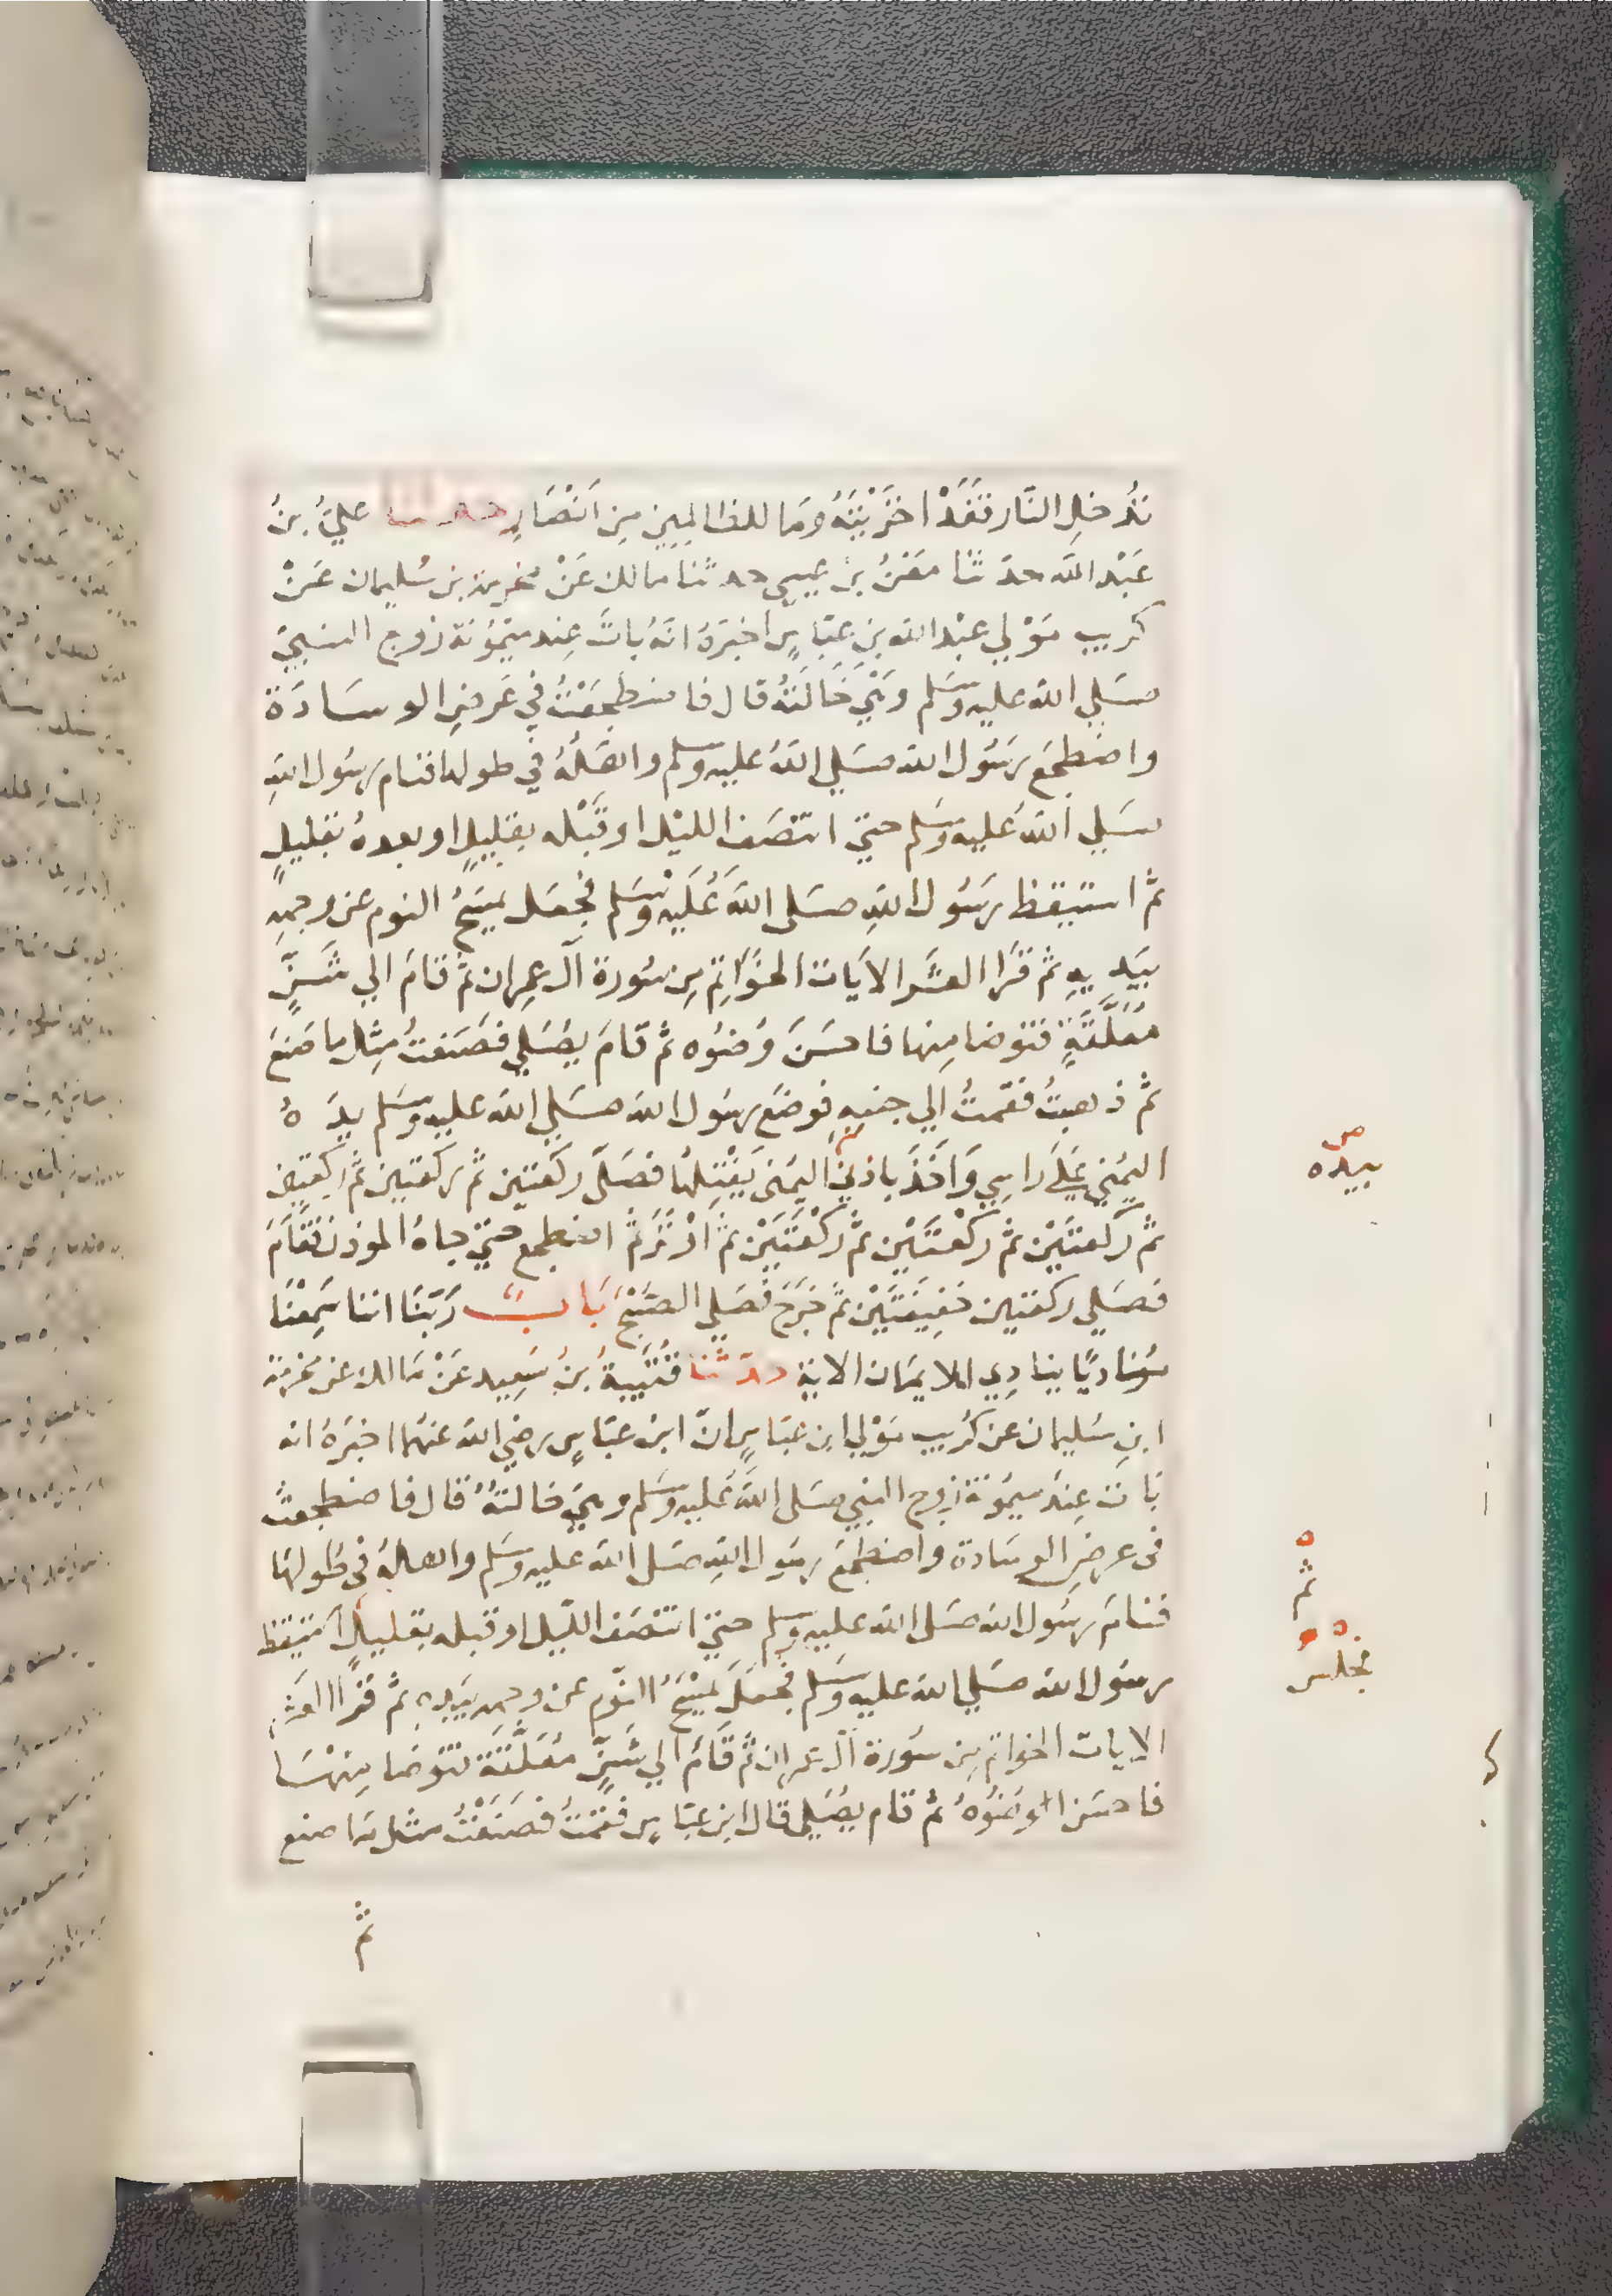 تُدْخلِ النَّار فَقَدْ اخْزَيْتَهُ وَمَا للظالمِين مِن اَنْصَارٍ حدثنا عليُّ بنُ
عَبْد الله حدثَنا مَعْنُ بن عيسي حدثنا مالك عَنْ مخرمة بن سُليمان عَنْ
كريب مَوْلي عبْد الله بنِ عبَّاسٍ اخبَرَهُ انهُ باتَ عِند ميْمُونة زوج النبيّ
صَلي الله عليه وسَلم وَهْيَ خَالَتُهُ قال فاضطجَعْتُ في عَرضِ الوسَادَة
واضطجعَ رسُول الله صَلي اللهُ عليه وسلم واهْلُهُ في طولها فنام رسُول اللهِ
صَلي اللهُ عَليه وَسَلم حتيّ انتصَف الليْل او قَبْله بقليلٍ او بعدهُ بقليلٍ
ثمّ استيقظ رسُول اللهِ صَلى اللهُ عَليه وسَلم فجعَل يمسَحُ النوم عن وجههِ
بيَديهِ ثم قرَا العشَر الايَات الخوَاتِم مِن سُورة آل عِمران ثمّ قامَ الي شَنٍّ
مُعَلَّقَةٍ فتوضا مِنها فاحسَنَ وُضوُه ثم قامَ يصُلي فصَنعتُ مِثل ما صَنعَ
ثمّ ذهبتُ فقمتُ الي جنبهِ فوضعَ رسُول الله صَلي الله عليه وسَلم يدَهُ
اليُمْني عَلَي راسِي وَاخَذَ باذني اليمْنى يَفْتِلهُا فصَلَّى ركعتين ثم ركعتين ثم ركعتين
ثمّ ركعتَيْن ثم ركعتَيْن ثمّ ركْعتَيَنْ ثمّ اوْتَرَ ثمّ اضطجع حتيّ جاهُ الموذن فقَامَ
فصَلي ركعتين خفيفَتَيْن ثمّ خرَجَ فصَلي الصّبْحَ بَابٌ رَبّنَا اننا سَمِعْنَا
مُناديًا ينادِي للايمَان الاية حدّثنا قُتَيبةُ بنُ سَعِيد عَنْ مَالك عن مخرمة
ابنِ سُليمان عن كرُيب مَوْلي ابن عبَّاسٍ انّ ابنَ عبَّاسٍ رضي الله عنهُما اخبَرَهُ انه
بَات عِندَ ميمُونة زوج النبي صَلى اللهُ عَليه وسَلم وهيَ خالتهُ قال فاضطجعتُ
فى عرضِ الوسَادة واضطجعَ رسُول اللهِ صَلى الله عليه وسَلم واهلهُ في طولهَا
فنامَ رسُول الله صَلى الله عليه وسلم حتيّ انتصَف الليل او قبله بقليلٍ استيقظ
رسُول الله صَلي الله عليه وسَلم فجعَلَ يمْسَحُ النّوم عن وجهه بيَدهِ ثم قرا العَشر
الايات الخواتم مِن سُورة آل عمران ثم قَامَ الي شَنٍّ مُعَلَّقَة فتوضا مِنهَا
فاحسَن الوضُوُهُ ثم قام يصُلي قال ابن عبَّاسٍ فقمتُ فصَنَعْتُ مثل مَا صنع
ثم
ص
بيده
ثم
فجلس